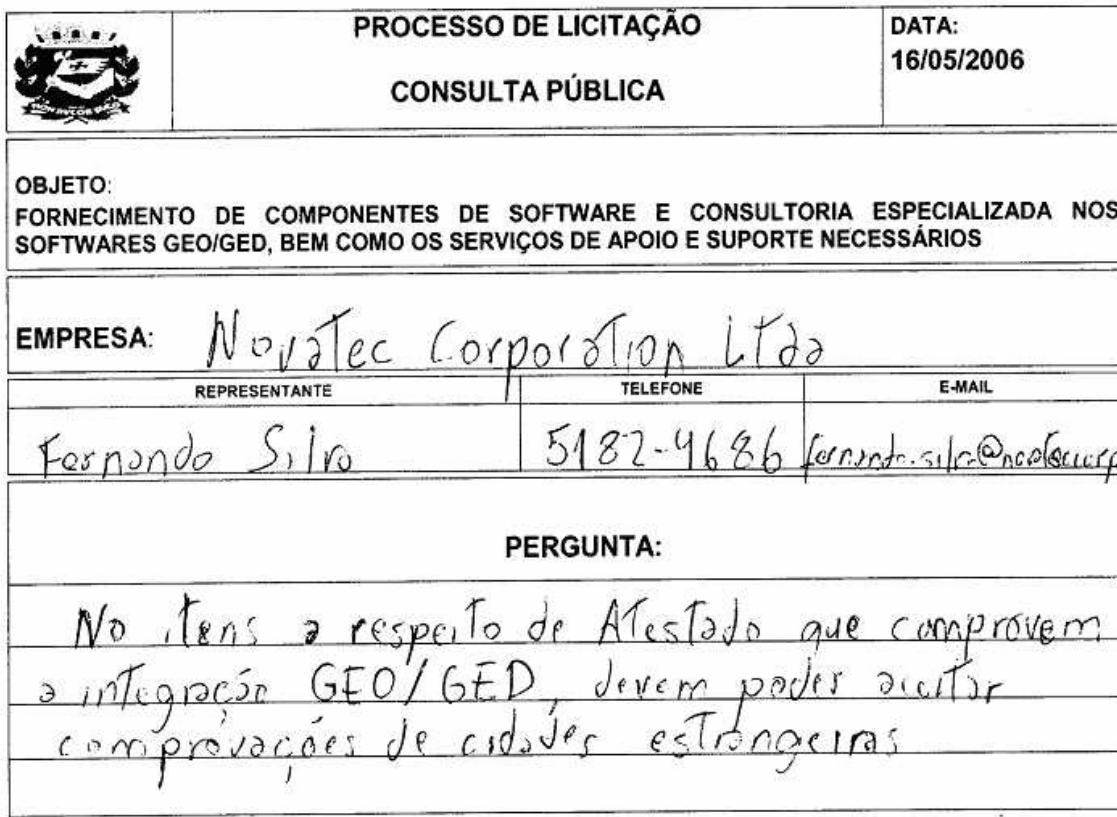 PROCESSO DE LICITAÇÃO
CONSULTA PÚBLICA
DATA:
16/05/2006
OBJETO:
FORNECIMENTO DE COMPONENTES DE SOFTWARE E CONSULTORIA ESPECIALIZADA NOS
SOFTWARES GEO/GED, BEM COMO OS SERVIÇOS DE APOIO E SUPORTE NECESSÁRIOS
EMPRESA: Novatec Corporation Ltda
REPRESENTANTE TELEFONE E-MAIL
Fernando Silva 5182-4686
PERGUNTA:
No itens a respeito de Atestado que comprovem
a integração GEO/GED, devem poder aceitar
comprovações de cidades estrangeiras